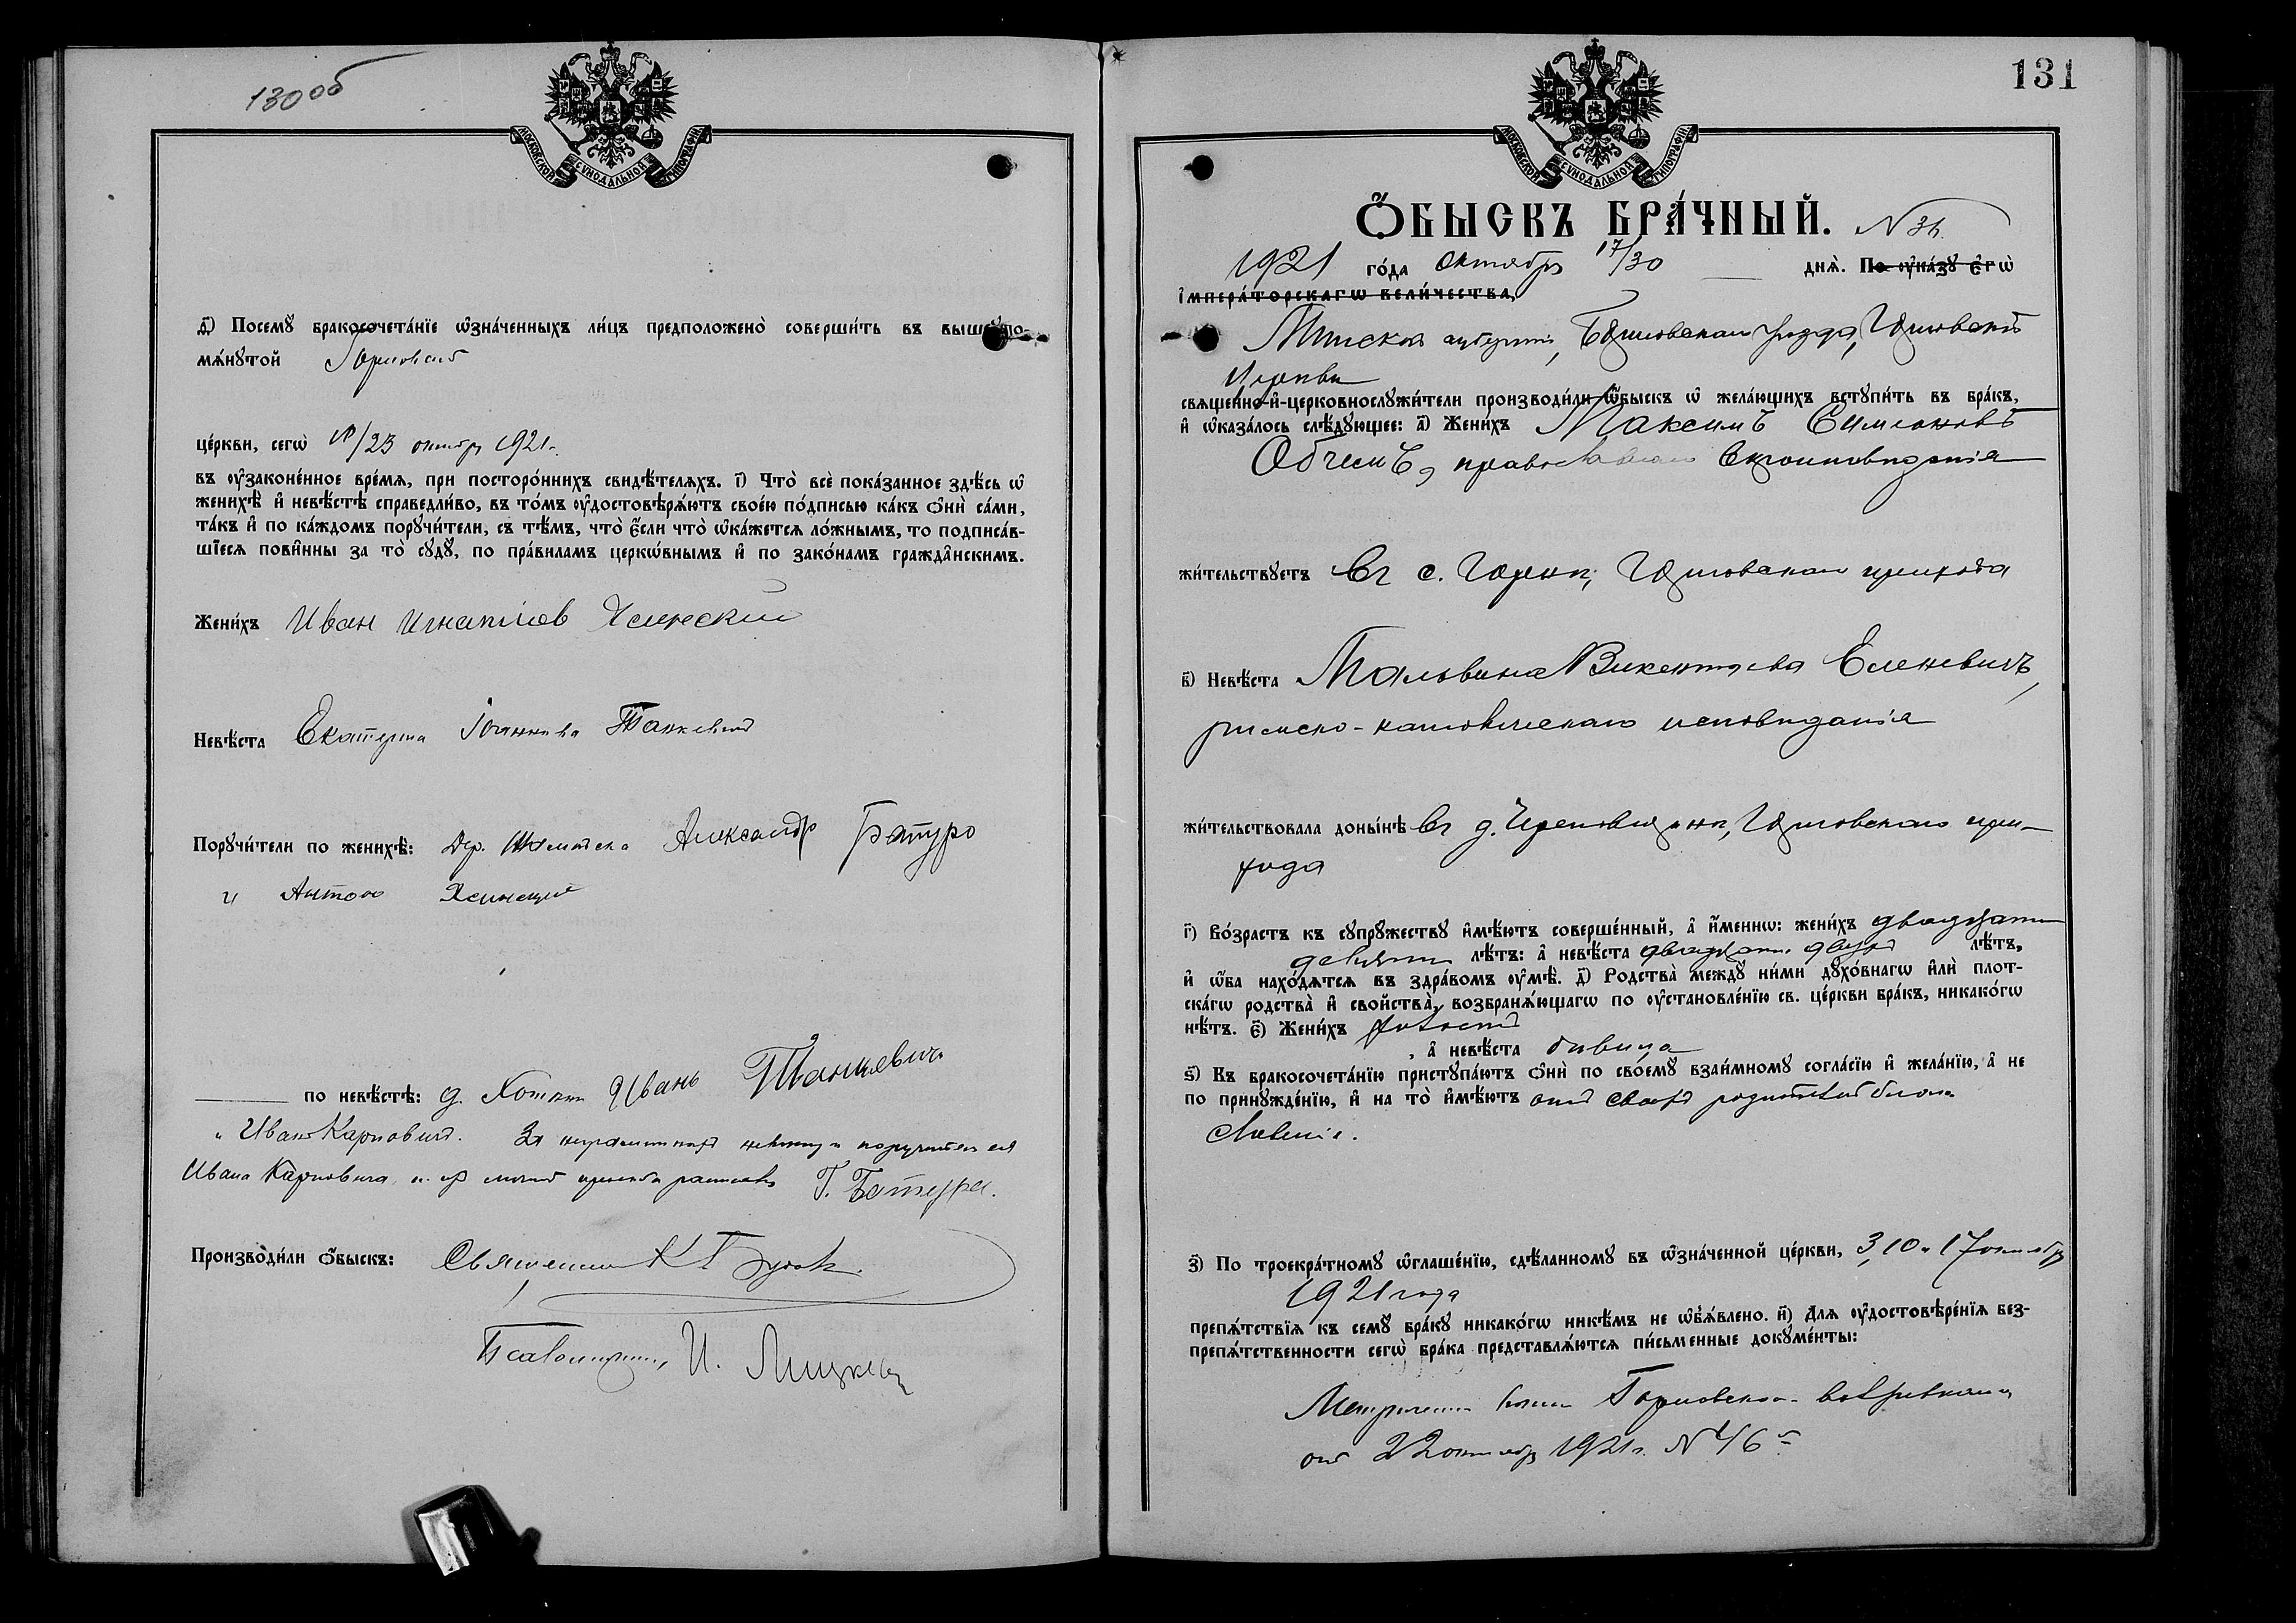 130об
МОСКОВСКОЙ СѴНОДАЛЬНОЙ ТИПОГРАФІИ
д҃) Посемꙋ̀ бракосочета́нїе ѡ҆зна́ченныхъ ли́цъ предположено̀ соверши́ть въ вышеꙋпо-
мѧ́нꙋтой Горковской
це́ркви, сегѡ̀ 10/23 октября 1921 г.
въ ᲂу҆зако́ненное вре́мѧ, при посторо́ннихъ свидѣ́телѧхъ. і҃) Что̀ всѐ пока́занное здѣ́сь ѡ҆
женихѣ̀ и҆ невѣ́стѣ справедли́во, въ то́мъ ᲂу҆достовѣрѧ́ютъ свое́ю по́дписью ка́къ ѻ҆нѝ са́ми,
та́къ и҆ по ка́ждомъ порꙋчи́тели, съ тѣ́мъ, что̀ є҆́сли что̀ ѡ҆ка́жетсѧ ло́жнымъ, то подписа́в-
шїесѧ пови́нны за то̀ сꙋдꙋ̀, по пра́виламъ церкѡ́внымъ и҆ по зако́намъ гражда́нскимъ.
Жени́хъ Иван Игнатіев Ясинский
Невѣ́ста Екатерина Іоаннова Танкевич
Порꙋчи́тели по женихѣ̀: Дер. Александр Батуро
и Антон Ясинский
по невѣ́стѣ: д. Иванъ Танкевич
и Иван Карпович. За неграмотную невесту и поручителя ея
Ивана Карповича, по их личной просьбе расписался Г. Батура.
Производи́ли ѻ҆́быскъ: Священник К
Псаломщик, И. Лицкевич
131
МОСКОВСКОЙ СѴНОДАЛЬНОЙ ТИПОГРАФІИ
Ѻ҆БЫСКЪ БРА́ЧНЫЙ. N 31.
1921 го́да октября 17/30 днѧ̀. По ᲂу҆ка́зꙋ є҆гѡ̀
і҆мпера́торскагѡ вели́чества,
Минской губернии, Борисовского уезда, Горковской
церкви
свѧще́нно-и҆-церковнослꙋжи́тели производи́ли ѻ҆́быскъ ѡ҆ жела́ющихъ встꙋпи́ть въ бра́къ,
и҆ ѡ҆каза́лось слѣ́дꙋющее: а҃) Жени́хъ Максимъ Симеоновъ
православнаго вероисповеданія
жи́тельствꙋетъ въ с. Горки, Горковскаго прихода
в҃) Невѣ́ста Мальвина Викентьева Еленевичъ,
римско-католическаго исповеданія
жи́тельствовала доны́нѣ въ д. Горковскаго при-
хода
г҃) Во́зрастъ къ сꙋпрꙋ́жествꙋ и҆мѣ́ютъ соверше́нный, а҆ и҆́меннѡ: жени́хъ двадцати
девяти лѣ́тъ: а҆ невѣ́ста двадцати двух лѣ́тъ,
и҆ ѻ҆́ба нахо́дѧтсѧ въ здра́вомъ ᲂу҆мѣ̀. д҃) Родства̀ междꙋ̀ ни́ми дꙋхо́внагѡ и҆лѝ плот-
ска́гѡ родства̀ и҆ свойства̀, возбранѧ́ющагѡ по ᲂу҆становле́нїю св. це́ркви бра́къ, никако́гѡ
нѣ́тъ. є҃) Жени́хъ холост
, а҆ невѣ́ста девица
ѕ҃) Къ бракосочета́нїю пристꙋпа́ютъ ѻ҆нѝ по своемꙋ̀ взаи́мномꙋ согла́сїю и҆ жела́нїю, а҆ не
по принꙋжде́нїю, и҆ на то̀ и҆мѣ́ютъ от своих родителей благо-
словение.
з҃) По троекра́тномꙋ ѡ҆глаше́нїю, сдѣ́ланномꙋ въ ѡ҆зна́ченной це́ркви, 3, 10 и 17 октября
1921 года
препѧ́тствїѧ къ семꙋ̀ бра́кꙋ никако́гѡ никѣ́мъ не ѡ҆б̾ѧ́влено. и҃) Длѧ ᲂу҆достовѣре́нїѧ без-
препѧ́тственности сегѡ̀ бра́ка представлѧ́ютсѧ пи́сьменные докꙋме́нты:
Горковского
от 22 октября 1921 г. N 46